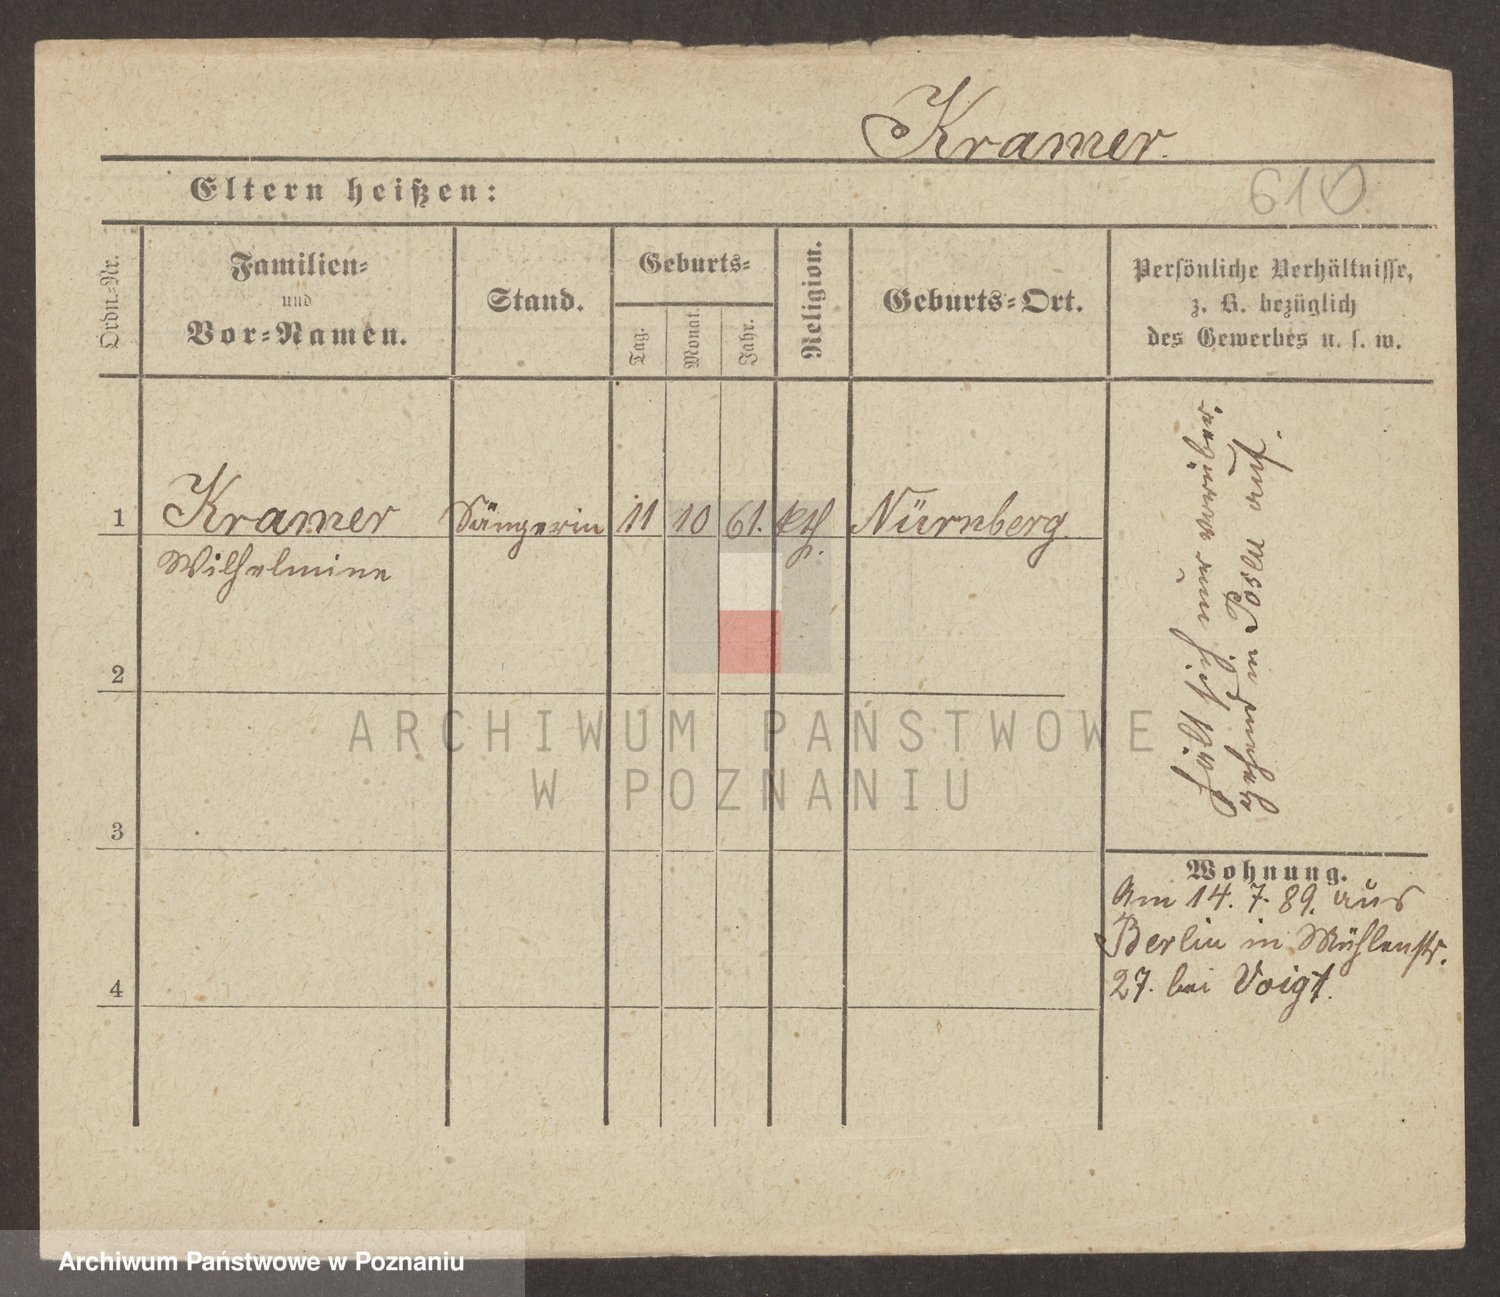 Kramer.
Eltern heißen:
610
Ordn.-Nr.
Familien-
und
Vor-Namen.
Stand.
Geburts-
Tag.
Monat.
Jahr.
Religion.
Geburts-Ort.
Persönliche Verhältnisse,
z. B. bezüglich
des Gewerbes u. s. w.
1
Kramer
Wilhelmine
Sängerin
11
10
61.
kth.
Nürnberg.
hält sich nur vorüber
gehend in Posen auf.
2
3
4
Wohnung.
Am 14. 7. 89. aus
Berlin in Mühlenstr.
27. bei Voigt.
ARCHIWUM PAŃSTWOWE
W POZNANIU
Archiwum Państwowe w Poznaniu